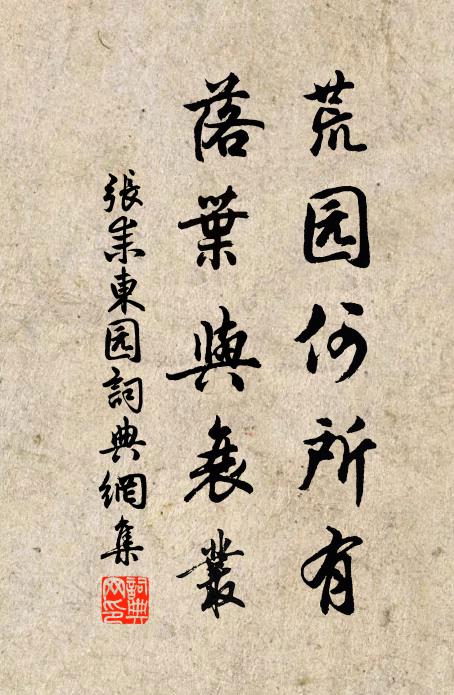 荒园何所有
落葉與衰叢
張耒東园詞典網集
詞典網印